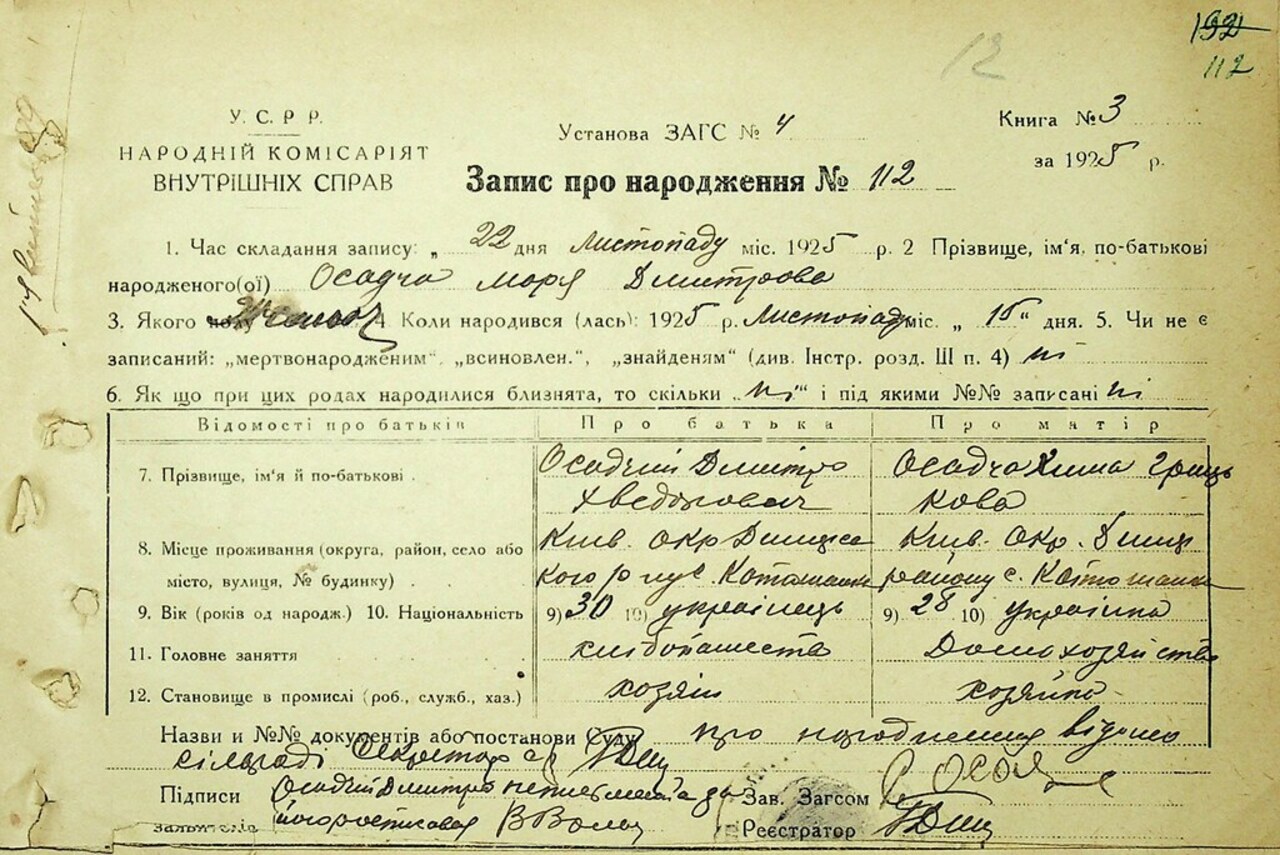 132
112
12
У. С. Р Р.
НАРОДНІЙ КОМІСАРІЯТ
ВНУТРІШНІХ СПРАВ
Установа ЗАГС № 4
Книга № 3
за 1925 р.
Запис про народження № 112
1. Час складання запису: „ 22 дня листопаду міс. 1925 р. 2 Прізвище, ім'я, по-батькові
народженого(ої) Осадча Моря Дмитрова
3. Якого полу 4 Коли народився (лась): 1925 р. листопаду міс. „ 15 “ дня. 5. Чи не є
записаний: „мертвонародженим“, „всиновлен.“, „знайденям“ (див. Інстр. розд. Ш п. 4) ні
6. Як що при цих родах народилися близнята, то скільки „ ні “ і під якими №№ записані ні
Відомості про батьків Про батька Про матір
7. Прізвище, ім'я й по-батькові . Осадчий Дмитро Осадча Хима Гриць
Хведорович кова
8. Місце проживання (округа, район, село або Київ. окр Київ. Окр.
місто, вулиця, № будинку) . . . району с.
9. Вік (років од народж.) 10. Національність 9) 30 10) українець 9) 28 10) українка
11. Головне заняття хлібопашество Домохозяйство
12. Становище в промислі (роб., служб., хаз.) хозяін хозяйка
Назви и №№ документів або постанови Суду про народження відомо
сільраді Секретар
Підписи Осадчий Дмитро Зав. Загсом
заявителів Реєстратор